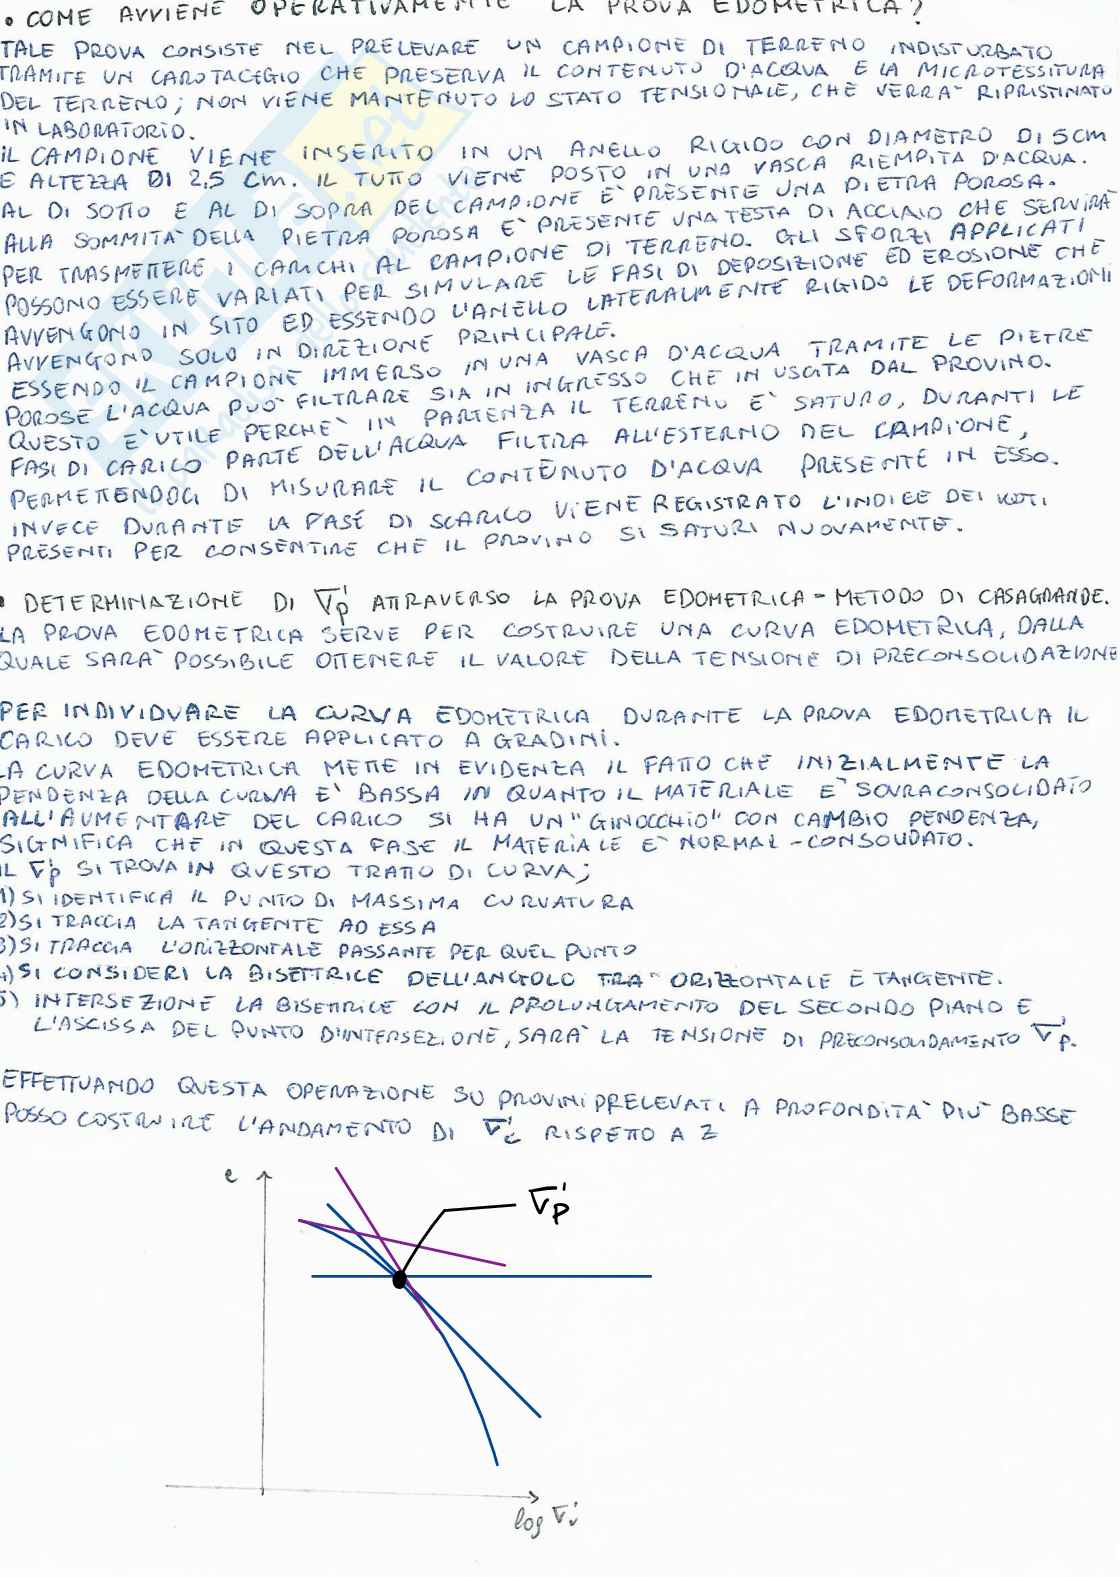 • COME AVVIENE OPERATIVAMENTE LA PROVA EDOMETRICA?
TALE PROVA CONSISTE NEL PRELEVARE UN CAMPIONE DI TERRENO INDISTURBATO
TRAMITE UN CAROTAGGIO CHE PRESERVA IL CONTENUTO D'ACQUA E LA MICROTESSITURA
DEL TERRENO; NON VIENE MANTENUTO LO STATO TENSIONALE, CHE VERRA' RIPRISTINATO
IN LABORATORIO.
IL CAMPIONE VIENE INSERITO IN UN ANELLO RIGIDO CON DIAMETRO DI 5cm
E ALTEZZA DI 2,5 cm. IL TUTTO VIENE POSTO IN UNA VASCA RIEMPITA D'ACQUA.
AL DI SOTTO E AL DI SOPRA DEL CAMPIONE E' PRESENTE UNA PIETRA POROSA.
ALLA SOMMITA' DELLA PIETRA POROSA E' PRESENTE UNA TESTA DI ACCIAIO CHE SERVIRÀ
PER TRASMETTERE I CARICHI AL CAMPIONE DI TERRENO. GLI SFORZI APPLICATI
POSSONO ESSERE VARIATI PER SIMULARE LE FASI DI DEPOSIZIONE ED EROSIONE CHE
AVVENGONO IN SITO ED ESSENDO L'ANELLO LATERALMENTE RIGIDO LE DEFORMAZIONI
AVVENGONO SOLO IN DIREZIONE PRINCIPALE.
ESSENDO IL CAMPIONE IMMERSO IN UNA VASCA D'ACQUA TRAMITE LE PIETRE
POROSE L'ACQUA PUO' FILTRARE SIA IN INGRESSO CHE IN USCITA DAL PROVINO.
QUESTO E' UTILE PERCHE' IN PARTENZA IL TERRENO E' SATURO, DURANTI LE
FASI DI CARICO PARTE DELL'ACQUA FILTRA ALL'ESTERNO DEL CAMPIONE,
PERMETTENDOCI DI MISURARE IL CONTENUTO D'ACQUA PRESENTE IN ESSO.
INVECE DURANTE LA FASE DI SCARICO VIENE REGISTRATO L'INDICE DEI VUOTI
PRESENTI PER CONSENTIRE CHE IL PROVINO SI SATURI NUOVAMENTE.
• DETERMINAZIONE DI σ'p ATTRAVERSO LA PROVA EDOMETRICA - METODO DI CASAGRANDE.
LA PROVA EDOMETRICA SERVE PER COSTRUIRE UNA CURVA EDOMETRICA, DALLA
QUALE SARA' POSSIBILE OTTENERE IL VALORE DELLA TENSIONE DI PRECONSOLIDAZIONE
PER INDIVIDUARE LA CURVA EDOMETRICA DURANTE LA PROVA EDOMETRICA IL
CARICO DEVE ESSERE APPLICATO A GRADINI.
LA CURVA EDOMETRICA METTE IN EVIDENZA IL FATTO CHE INIZIALMENTE LA
PENDENZA DELLA CURVA E' BASSA IN QUANTO IL MATERIALE E' SOVRACONSOLIDATO
ALL'AUMENTARE DEL CARICO SI HA UN "GINOCCHIO" CON CAMBIO PENDENZA,
SIGNIFICA CHE IN QUESTA FASE IL MATERIALE E' NORMAL-CONSOLIDATO.
IL σ'p SI TROVA IN QUESTO TRATTO DI CURVA;
1) SI IDENTIFICA IL PUNTO DI MASSIMA CURVATURA
2) SI TRACCIA LA TANGENTE AD ESSA
3) SI TRACCIA L'ORIZZONTALE PASSANTE PER QUEL PUNTO
4) SI CONSIDERI LA BISETTRICE DELL'ANGOLO TRA ORIZZONTALE E TANGENTE.
5) INTERSEZIONE LA BISETTRICE CON IL PROLUNGAMENTO DEL SECONDO PIANO E
L'ASCISSA DEL PUNTO D'INTERSEZIONE, SARA' LA TENSIONE DI PRECONSOLIDAMENTO σ'p.
EFFETTUANDO QUESTA OPERAZIONE SU PROVINI PRELEVATI A PROFONDITA' PIU' BASSE
POSSO COSTRUIRE L'ANDAMENTO DI σ'c RISPETTO A Z
e
σ'p
log σ'v